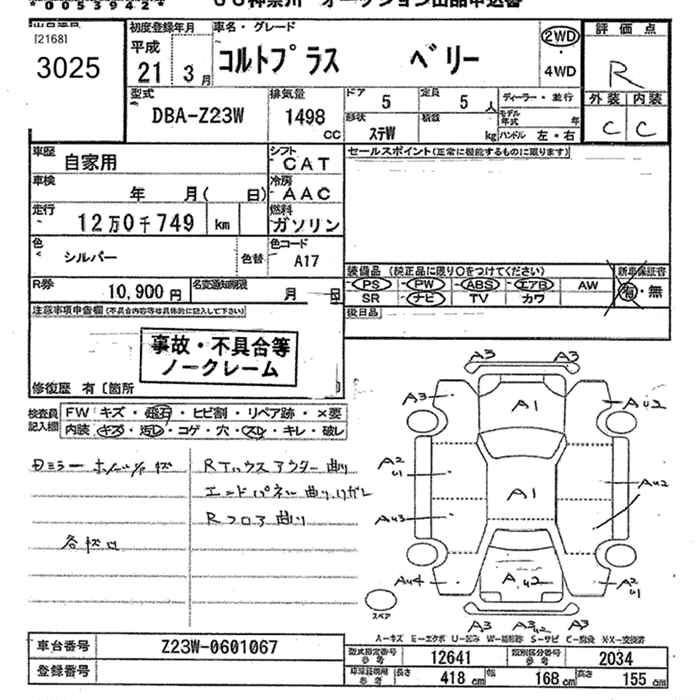 *0053942*
[2168]
3025
初度登録年月
平成
21 3月
車名・グレード
コルトプラス ベリー
2WD
・
4WD
評価点
R
外装 内装
C C
型式
DBA-Z23W
排気量
1498
CC
ドア
5
定員
5 人
形状
ステW
積載
kg
ディーラー・並行
モデル年式 年
ハンドル 左・右
車歴
自家用
シフト
CAT
セールスポイント(正常に機能するものに限ります)
車検
年 月( 日)
冷房
AAC
走行
12万0千749 km
燃料
ガソリン
色
シルバー
色替
色コード
A17
装備品 (純正品に限り○をつけてください)
新車保証書
PS PW ABS エアB AW
SR ナビ TV カワ
有・無
R券
10,900 円
名変通知期限
月 日
後日品
注意事項申告欄(不具合内容等は具体的に記入して下さい)
事故・不具合等
ノークレーム
修復歴 有〔箇所
検査員
記入欄
FW キズ・飛石・ヒビ割・リペア跡・×要
内装 キズ・汚レ・コゲ・穴・スレ・キレ・破レ
RTハウスアウター曲り
エンドパネル曲り
Rフロア曲り
A3 A3
A3
AU2
A1
A2
U1
AU2
A1
AU3
AU4
AU2
A2
U1
スペア
A3 A3
U2
A3
A-キズ E-エクボ U-凹み S-サビ C-腐食 X-交換済
車台番号
Z23W-0601067
登録番号
型式指定番号
参考
12641
類別区分番号
参考
2034
車検証備用
参考
長さ
418 cm
幅
168 cm
高さ
155 cm